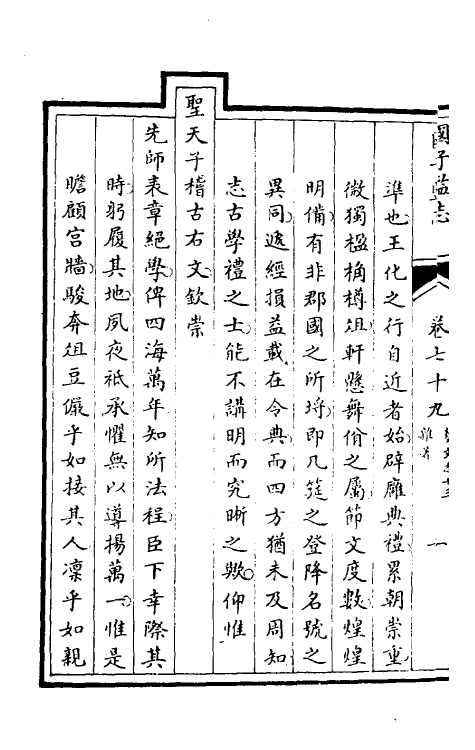 國子監志
卷七十九
一
準也王化之行自近者始辟廱典禮累朝崇重
微獨楹桷樽俎軒懸舞佾之屬節文度數煌煌
明備有非郡國之所埒即几筵之登降名號之
異同遞經損益載在令典而四方猶未及周知
志古學禮之士能不講明而究晰之歟仰惟
聖天子稽古右文欽崇
先師表章絕學俾四海萬年知所法程臣下幸際其
時躬履其地夙夜祗承懼無以導揚萬一惟是
瞻顧宮牆駿奔俎豆儼乎如接其人凜乎如親